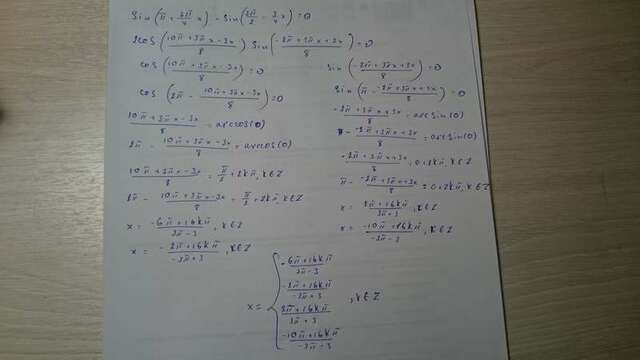 sin(π + 3π/4 x) - sin(3π/2 - 3/4 x) = 0
2cos((10π + 3πx - 3x)/8) sin((-2π + 3πx + 3x)/8) = 0
cos((10π + 3πx - 3x)/8) = 0
cos(2π - (10π + 3πx - 3x)/8) = 0
(10π + 3πx - 3x)/8 = arccos(0)
2π - (10π + 3πx - 3x)/8 = arccos(0)
(10π + 3πx - 3x)/8 = π/2 + 2kπ, k∈Z
2π - (10π + 3πx - 3x)/8 = π/2 + 2kπ, k∈Z
x = (-6π + 16kπ)/(3π - 3), k∈Z
x = -(2π + 16kπ)/(-3π + 3), k∈Z
sin((-2π + 3πx + 3x)/8) = 0
sin(π - (-2π + 3πx + 3x)/8) = 0
(-2π + 3πx + 3x)/8 = arcsin(0)
π - (-2π + 3πx + 3x)/8 = arcsin(0)
(-2π + 3πx + 3x)/8 = 0 + 2kπ, k∈Z
π - (-2π + 3πx + 3x)/8 = 0 + 2kπ, k∈Z
x = (2π + 16kπ)/(3π + 3), k∈Z
x = (-10π + 16kπ)/(-3π - 3), k∈Z
x = {
(-6π + 16kπ)/(3π - 3)
(-2π + 16kπ)/(-3π + 3)
(2π + 16kπ)/(3π + 3)
(-10π + 16kπ)/(-3π - 3)
, k∈Z